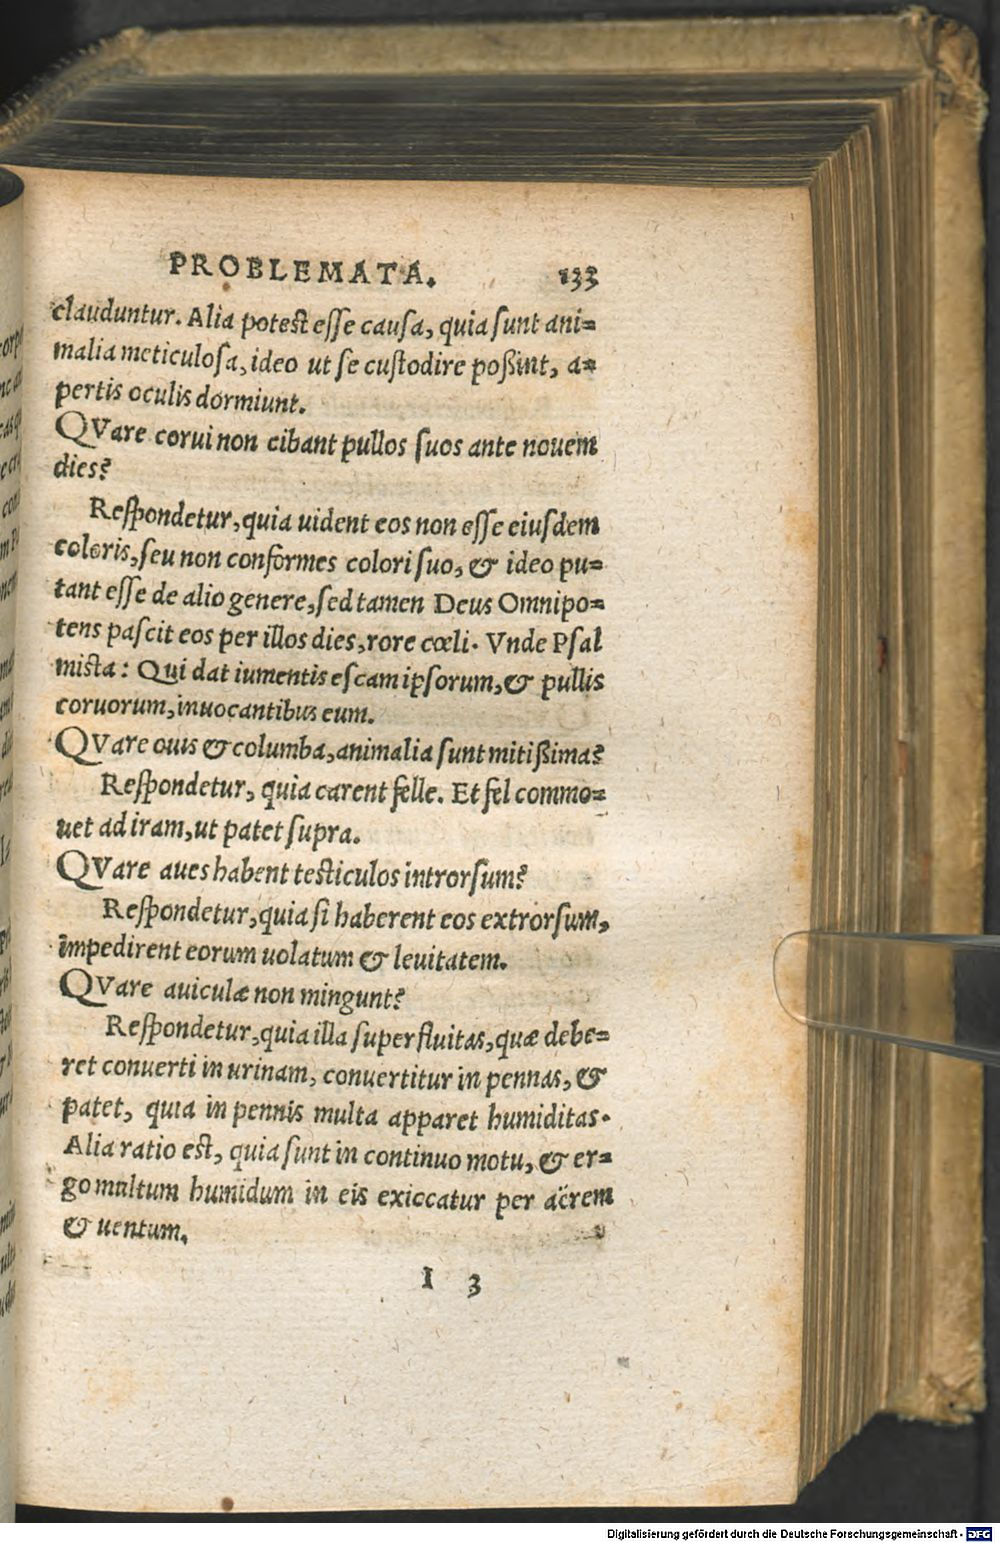 PROBLEMATA. 133
clauduntur. Alia potest esse causa, quia sunt ani=
malia meticulosa, ideo ut se custodire poßint, a=
pertis oculis dormiunt.
QVare corui non cibant pullos suos ante nouem
dies?
Respondetur, quia uident eos non esse eiusdem
coloris, seu non conformes colori suo, & ideo pu=
tant esse de alio genere, sed tamen Deus Omnipo=
tens pascit eos per illos dies, rore cœli. Vnde Psal
mista: Qui dat iumentis escam ipsorum, & pullis
coruorum, inuocantibus eum.
QVare ouis & columba, animalia sunt mitißima?
Respondetur, quia carent felle. Et fel commo=
uet ad iram, ut patet supra.
QVare aues habent testiculos introrsum?
Respondetur, quia si haberent eos extrorsum,
impedirent eorum uolatum & leuitatem.
QVare auiculæ non mingunt?
Respondetur, quia illa superfluitas, quæ debe=
ret conuerti in urinam, conuertitur in pennas, &
patet, quia in pennis multa apparet humiditas.
Alia ratio est, quia sunt in continuo motu, & er=
go multum humidum in eis exiccatur per aërem
& uentum.
I 3
Digitalisierung gefördert durch die Deutsche Forschungsgemeinschaft - DFG